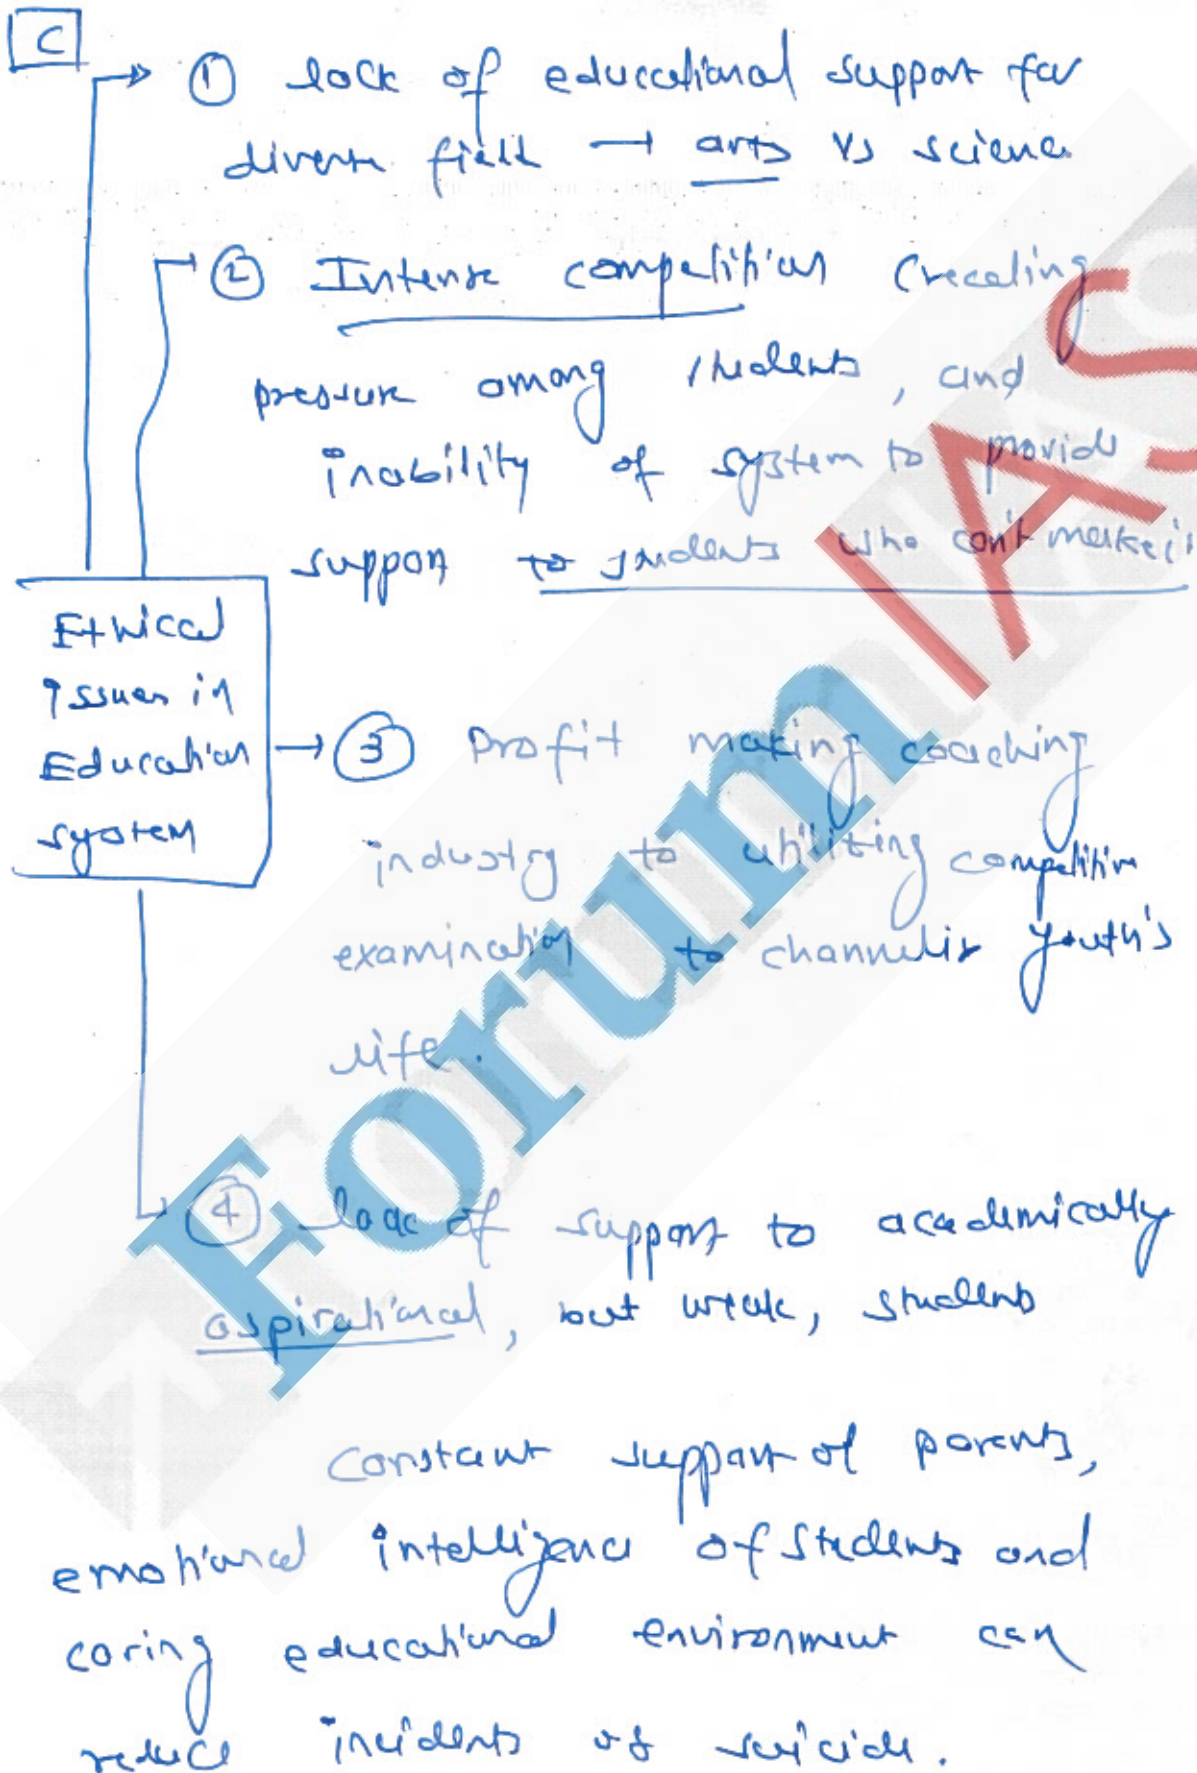 C
① lack of educational support for
diverse field → arts vs science
② Intense competition creating
pressure among students, and
inability of system to provide
support to students who can't make it
Ethical
issues in
Education
system
③ Profit making coaching
industry to utilizing competitive
examination to channelise youth's
life.
④ lack of support to academically
aspirational, but weak, students
Constant support of parents,
emotional intelligence of students and
caring educational environment can
reduce incidents of suicide.
Forum|IAS